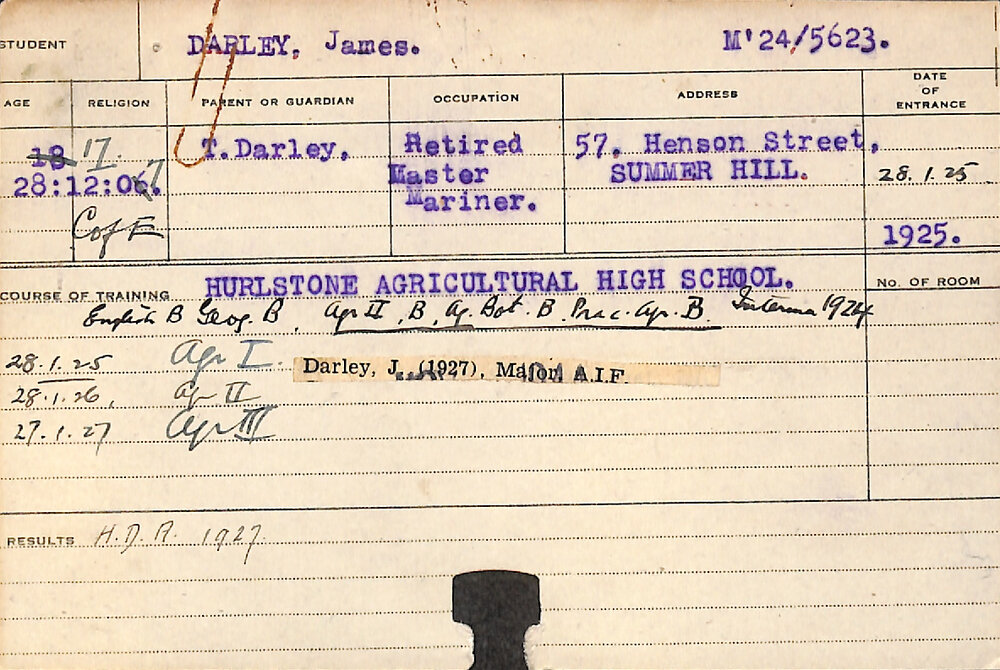 STUDENT DARLEY, James. M'24/5623.
AGE RELIGION PARENT OR GUARDIAN OCCUPATION ADDRESS DATE OF ENTRANCE
18 17 T.Darley. Retired 57, Henson Street,
28:12:06. 7 Master SUMMER HILL. 28.1.25
Mariner.
C of E
1925.
COURSE OF TRAINING HURLSTONE AGRICULTURAL HIGH SCHOOL. No. OF ROOM
English B Geog. B, Agr II, B, Ag. Bot. B Prac. Agr. B. Interm 1924
28.1.25 Agr I
Darley, J. (1927), Major, A.I.F.
28.1.26, Agr II
27.1.27 Agr III
RESULTS H.D.A. 1927